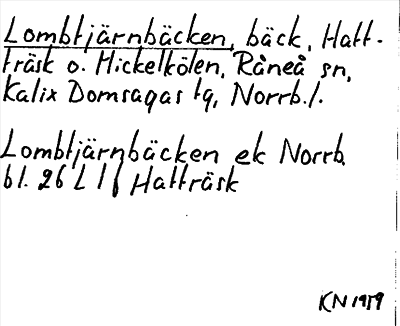 Lombtjärnbäcken, bäck, Hatt-
träsk o. Mickelkölen, Råneå sn,
Kalix Domsagas tg, Norrb. l.
Lombtjärnbäcken ek Norrb.
bl. 26 L 1 f Hatträsk
KN 1959